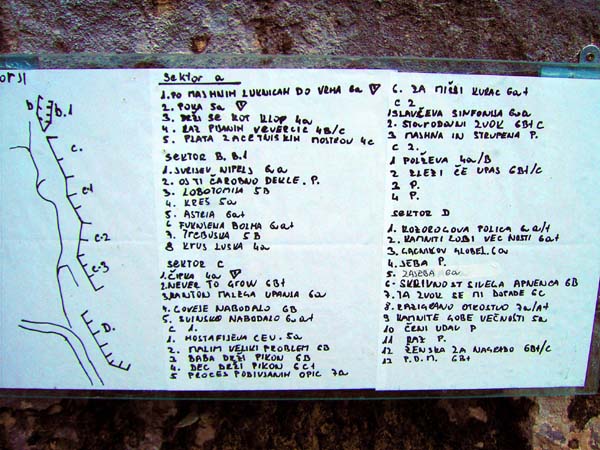 b b.1
c.
c1
c-2
c-3
D.
Sektor a
1. PO MASHNIH LUKNICAH DO VRHA 6a
2. POKA 5a
3. DRŽI SE KOT KLOP 4a
4. RAZ PIJANIH VEVERCIC 4B/c
5. PLATA ZAČETNIŠKIH MOSTROV 4c
SEKTOR B, B.1
2. OSTI ČAROBNO DEKLE. P.
3. LOBOTOMIJA 5B
4. KREŠ 5a
5. ASTRIA 6a+
6 FUKNJENA BOLHA 6a+
7. TREBUSKA 5B
8 KRUS LUSKA 4a
SEKTOR C
1. ČIPKA 4a
2. NEVER TO GROW 6B+
3. KANTON MALEGA UPANJA 6a
4. GOVEJE NABODALO 6B
5. SVINSKO NABODALO 6a+
C 1.
1. MOSTAFIJEVA CEV. 5a
2. MALIM VELIKI PROBLEM 6B
3 BABA DRŽI PIKON 6B
4. DEC DRŽI PIKON 6c+
5 PROCES PODIVJANIH OPIC 7a
6. ZA MIŠJI KURAC 6a+
C 2
1 SLAVČEVA SINFONIJA 6a
2. STARODAVNI ZVOK 6B+C
3 MASHNA IN STRUPENA P.
C 2.
1 POLŽEVA 4a/B
2 BLEŽI ČE UPAS 6B+/c
3 P.
4 P.
SEKTOR D
1. KOZOROGOVA POLICA 6a/+
2. KAMNITI LOBI VEČNOSTI 6a+
3. GACNIKOV GLOBEL. 6a
4. JEBA P.
5. ZAJEBA 6a
6. SKRIVNOST SIVEGA APNENCA 6B
7. TA ZVOK SE MI DOPADE 6c
8. RAZIGRANO OTROSTVO 7a/A+
9 KAMNITE GOBE VEČNOSTI 5a
10 ČRNI UDAV P
11 RAZ P.
12 ŽENSKA ZA NAGRADO 6B+/c
12 P.D.M. 6B+